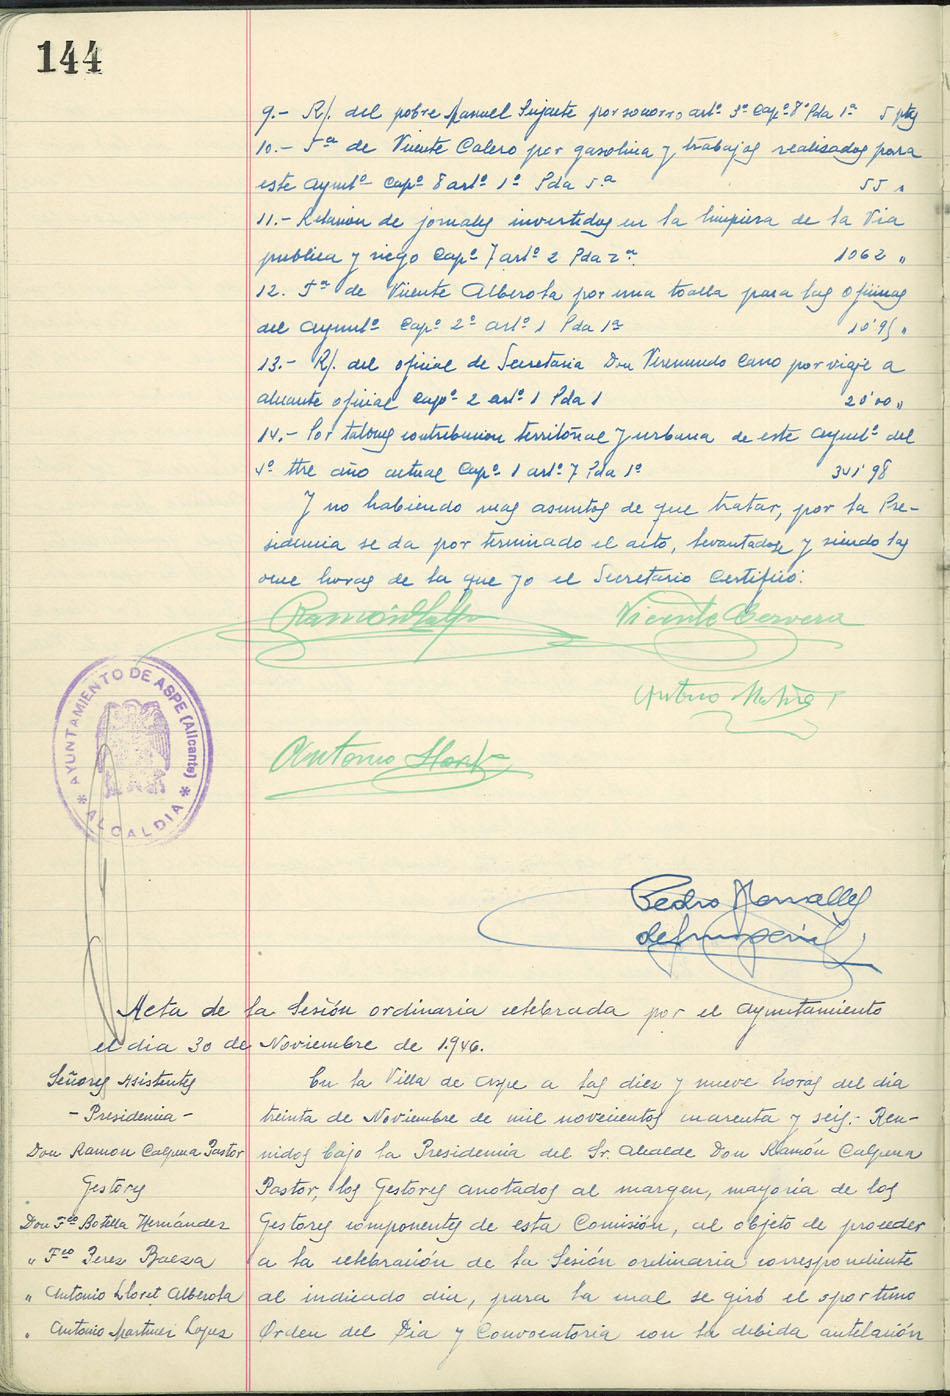 144
9.- R/. del pobre Manuel por socorro artº 3º Capº 8º Pda 1ª 5 ptas
10.- Fra de Vicente Calero por gasolina y trabajos realisados para
este Aymtº Capº 8 artº 1º Pda 5ª 55 "
11.- Relacion de jornales invertidos en la limpiesa de la Via
publica y riego Capº 7 artº 2 Pda 2ª. 1062 "
12. Fra de Vicente Alberola por una toalla para las oficinas
del Aymtº Capº 2º artº 1 Pda 1ª 10'95 "
13.- R/. del oficial de Secretaria Don Veremundo Cano por viaje a
alicante oficial Capº 2 artº 1 Pda 1 20'00 "
14.- Por talones contribucion territorial y urbana de este Aymtº del
4º ttre año actual Capº 1 artº 7 Pda 1º 341'98
Y no habiendo mas asuntos de que tratar, por la Pre-
sidencia se da por terminado el acto, levantadose y siendo las
once horas de la que yo el Secretario Certifico:
Ramón Calpe Vicente Cervera
AYUNTAMIENTO DE ASPE (Alicante)
* ALCALDIA *
Arturo
Antonio Lloret
Pedro
Acta de la Sesión ordinaria celebrada por el Ayuntamiento
el dia 30 de Noviembre de 1.946.
Señores Asistentes
- Presidencia -
Don Ramon Calpena Pastor
Gestores
Don Fco Botella Hernández
" Fco Perez Baeza
" Antonio Lloret Alberola
" Antonio Martinez Lopez
En la Villa de Aspe a las diez y nueve horas del dia
treinta de Noviembre de mil novecientos cuarenta y seis.- Reu-
nidos bajo la Presidencia del Sr. Alcalde Don Ramón Calpena
Pastor, los Gestores anotados al margen, mayoria de los
Gestores componentes de esta Comisión, al objeto de proceder
a la celebración de la Sesión ordinaria correspondiente
al indicado dia, para la cual se giró el oportuno
Orden del Dia y Convocatoria con la debida antelación